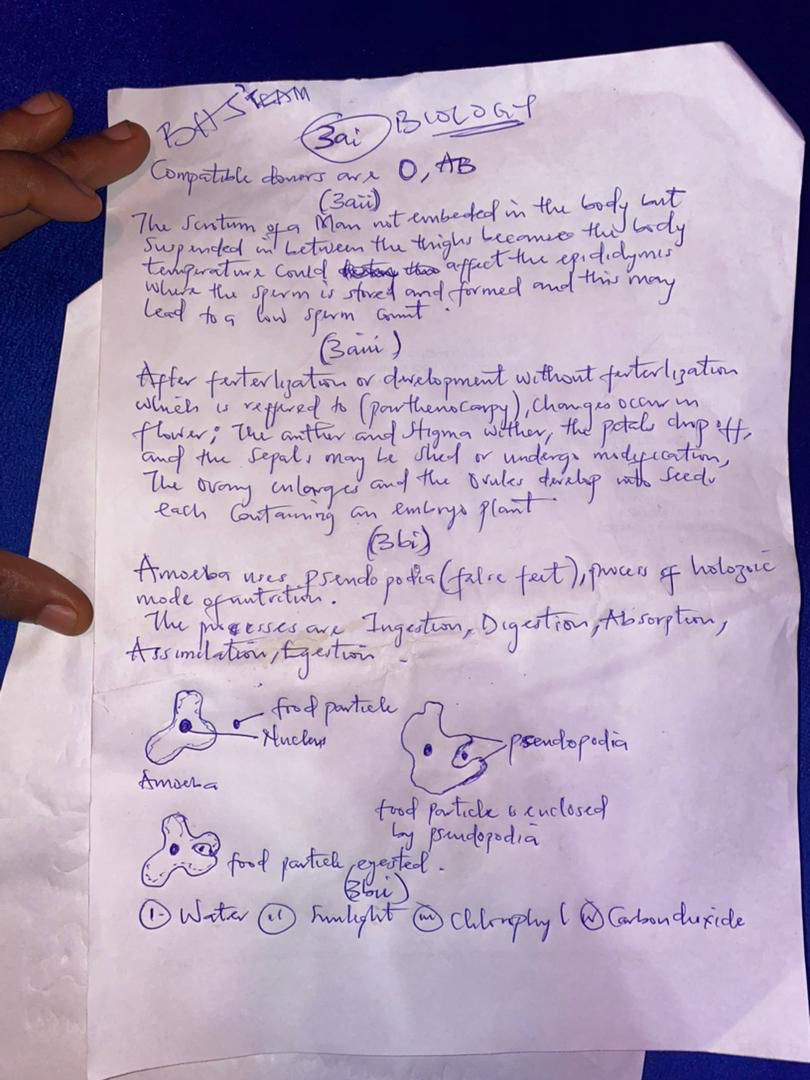 BHS TEAM
3ai BIOLOGY
Compatible donors are O, AB
(3aii)
The scrotum of a Man not embeded in the body but
suspended in between the thighs because the body
temperature could affect the epididymis
where the sperm is stored and formed and this may
lead to a low sperm count.
(3aiii)
After ferterlization or development without ferterlization
which is reffered to (parthenocarpy), changes occur in
flower; The anther and stigma wither, the petals drop off,
and the sepals may be shed or undergo modification,
The ovary enlarges and the ovules develop into seeds
each containing an embryo plant.
(3bi)
Amoeba uses pseudopodia (false feet), process of holozoic
mode of nutrition.
The processes are Ingestion, Digestion, Absorption,
Assimilation, Egestion.
food particle
Nucleus
Amoeba
pseudopodia
food particle is enclosed
by pseudopodia
food particle egested.
(3bii)
(i) Water (ii) Sunlight (iii) Chlorophyl (iv) Carbondioxide